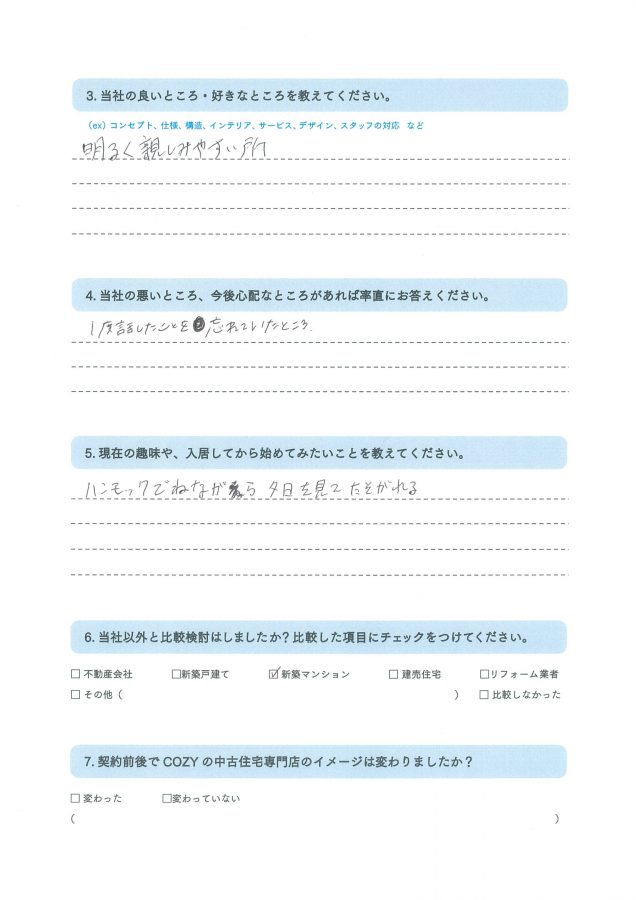 3. 当社の良いところ・好きなところを教えてください。
（ex）コンセプト、仕様、構造、インテリア、サービス、デザイン、スタッフの対応　など
明るく親しみやすい所
4. 当社の悪いところ、今後心配なところがあれば率直にお答えください。
1度話したことを忘れていたところ.
5. 現在の趣味や、入居してから始めてみたいことを教えてください。
ハンモックでねながら 夕日を見て たそがれる
6. 当社以外と比較検討はしましたか？比較した項目にチェックをつけてください。
□ 不動産会社　□新築戸建て　☑新築マンション　□ 建売住宅　□リフォーム業者
□ その他（　　　）　□ 比較しなかった
7. 契約前後で COZY の中古住宅専門店のイメージは変わりましたか？
□ 変わった　□変わっていない
（　　　）